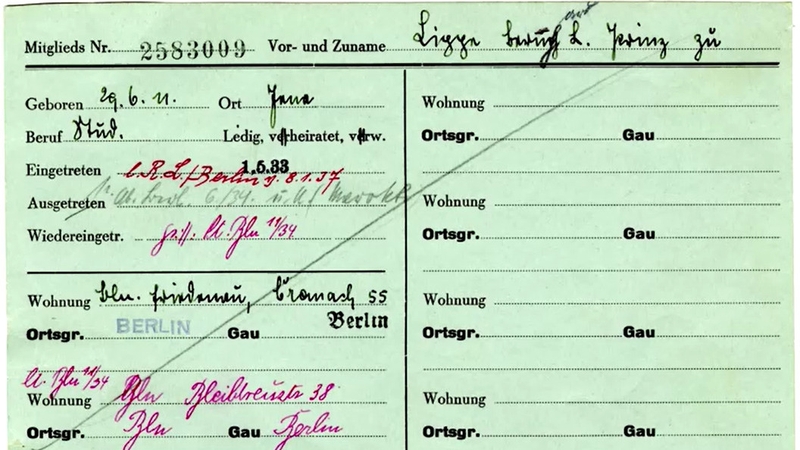 Mitglieds Nr. 2583009 Vor- und Zuname Lippe Bernh L. Prinz zu
Geboren 29.6.11. Ort Jena
Beruf Stud. Ledig, verheiratet, verw.
Eingetreten 1.5.33
l. R. L./Berlin v. 8.1.37
Ausgetreten 6/34.
Wiedereingetr. lt. Bln 11/34
Wohnung Bln. Friedenau, 55
Ortsgr. BERLIN Gau Berlin
lt. Bln 11/34
Wohnung Bln Bleibtreustr 38
Ortsgr. Bln Gau Berlin
Wohnung
Ortsgr. Gau
Wohnung
Ortsgr. Gau
Wohnung
Ortsgr. Gau
Wohnung
Ortsgr. Gau